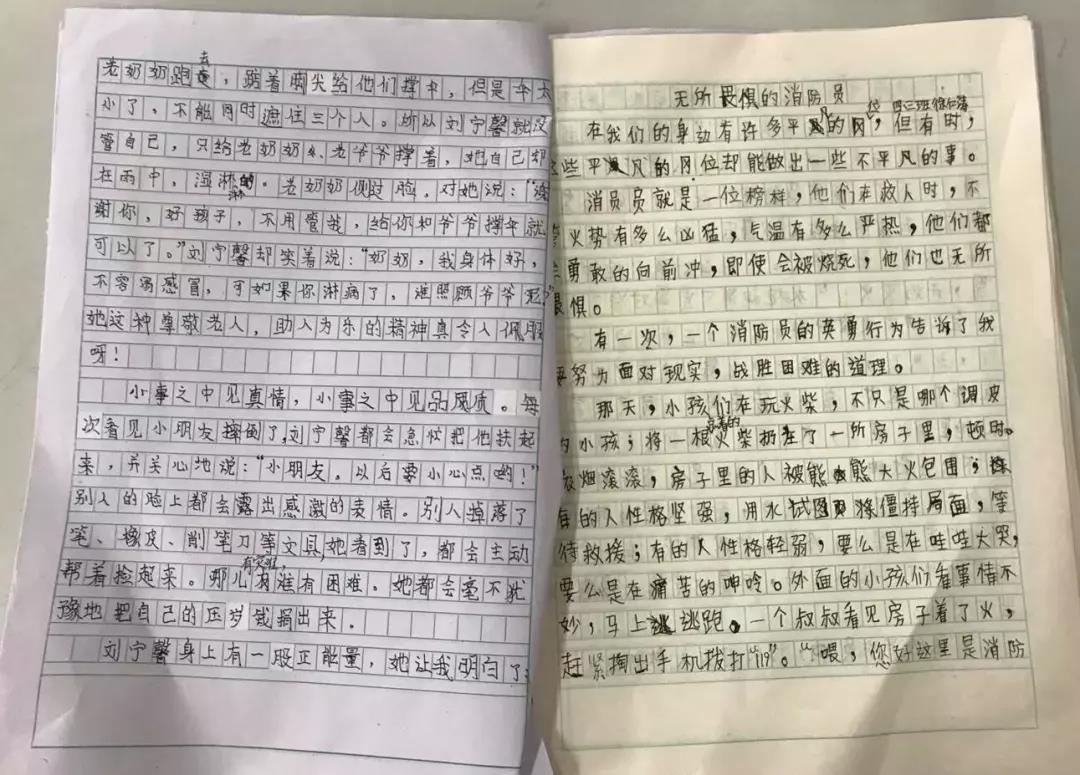 老奶奶跑去，踮着脚尖给他们撑伞，但是伞太
小了，不能同时遮住三个人。所以刘宁馨就没
管自己，只给老奶奶、老爷爷撑着，她自己却
在雨中，湿淋淋的。老奶奶侧过脸，对她说：“谢
谢你，好孩子，不用管我，给你和爷爷撑伞就
可以了。”刘宁馨却笑着说：“奶奶，我身体好，
不容易感冒，可如果你淋病了，谁照顾爷爷呢？”
她这种尊敬老人，助人为乐的精神真令人佩服
呀！
小事之中见真情，小事之中见品质。每
次看见小朋友摔倒了，刘宁馨都会急忙把他扶起
来，并关心地说：“小朋友，以后要小心点哟！”
别人的脸上都会露出感激的表情。别人掉落了
笔、橡皮、削笔刀等文具她看到了，都会主动
帮着捡起来。哪儿有灾难，有困难，她都会毫不犹
豫地把自己的压岁钱捐出来。
刘宁馨身上有一股正能量，她让我明白了：
无所畏惧的消防员
四二班
在我们的身边有许多平凡的岗位，但有时，
这些平凡的冈位却能做出一些不平凡的事。
消员员就是一位榜样，他们在救人时，不
管火势有多么凶猛，气温有多么严热，他们都
勇敢的向前冲，即使会被烧死，他们也无所
畏惧。
有一次，一个消防员的英勇行为告诉了我
要努力面对现实，战胜困难的道理。
那天，小孩们在玩火柴，不只是哪个调皮
的小孩；将一根点着的火柴扔进了一所房子里，顿时
浓烟滚滚，房子里的人被熊熊大火包围；
有的人性格坚强，用水试图僵持局面，等
待救援；有的人性格轻弱，要么是在哇哇大哭，
要么是在痛苦的呻吟。外面的小孩们看事情不
妙，马上逃跑。一个叔叔看见房子着了火，
赶紧掏出手机拨打“119”。“喂，您好这里是消防